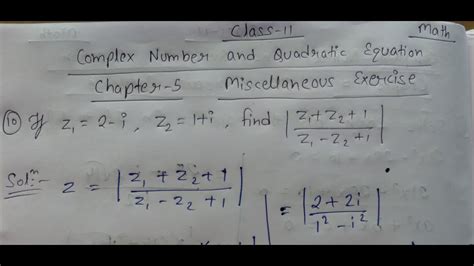 Class-11
Math
Complex Number and Quadratic Equation
Chapter-5 Miscellaneous Exercise
⑩ If z₁ = 2-i, z₂ = 1+i, find |(z₁+z₂+1)/(z₁-z₂+1)|
Solⁿ:- z = |(z₁+z₂+1)/(z₁-z₂+1)|
= |(2+2i)/(1²-i²)|